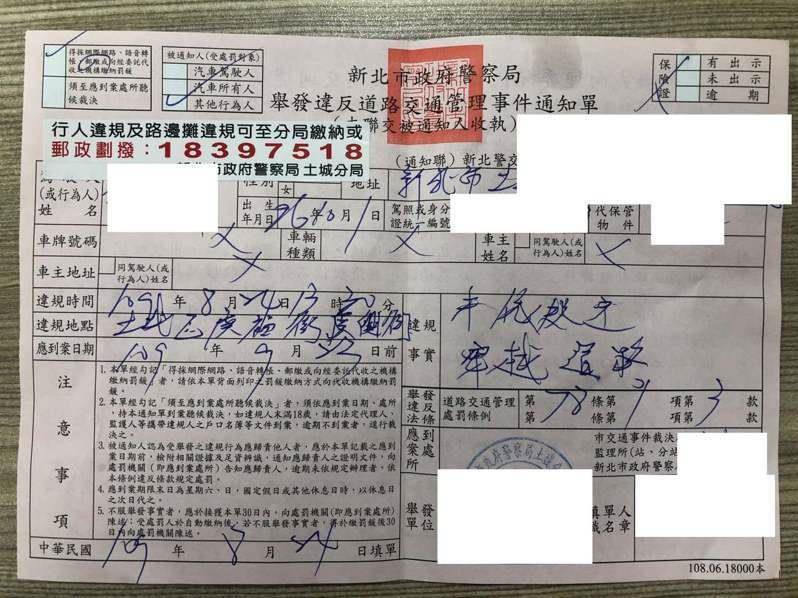 得採網際網路、語音轉
帳、郵繳或向經委託代
收之機構繳納罰鍰
須至應到案處所聽
候裁決
被通知人(受處罰對象)
汽車駕駛人
汽車所有人
其他行為人
新北市政府警察局
舉發違反道路交通管理事件通知單
聯交被通知人收執
保險證
有出示
未出示
逾期
行人違規及路邊攤違規可至分局繳納或
郵政劃撥:18397518
新北市政府警察局 土城分局
(通知聯) 新北警交
(或行為人)
姓名
性別
女
地址
新北市土
出生
年月日
96年10月1日
駕照或身分
證統一編號
代保管
物件
車牌號碼
車輛
種類
車主
姓名
同駕駛人(或
行為人)姓名
車主地址
同駕駛人(或
行為人)地址
違規時間
109年8月24日13時20分
違規地點
土城區廣福街
應到案日期
109年9月23日前
違規事實
穿越道路
舉發違反法條
道路交通管理
處罰條例
第78條第1項第3款
應到案處所
市交通事件裁決
監理所(站、分站
新北市政府警察
舉發
單位
填單人
職名章
注意事項
1.本單經勾記「得採網際網路、語音轉帳、郵繳或向經委託代收之機構
繳納罰鍰」者,請依本單背面列印之罰鍰繳納方式向代收機構繳納罰
鍰。
2.本單經勾記「須至應到案處所聽候裁決」者,須依應到案日期、處所,
持本通知單到案聽候裁決。如違規人未滿18歲,請由法定代理人、
監護人等攜帶違規人之戶口名簿等文件到案,逾期不到案者,逕行裁
決之。
3.被通知人認為受舉發之違規行為應歸責他人者,應於本單記載之應到
案日期前,檢附相關證據及足資辨識、通知應歸責人之證明文件,向
處罰機關(即應到案處所)告知應歸責人,逾期未依規定辦理者,依
本條例違反條款規定處罰。
4.應到案期限末日為星期六、日,國定假日或其他休息日時,以休息日
之次日代之。
5.不服舉發事實者,應於接獲本單30日內,向處罰機關(即應到案處所)
陳述;受處罰人於自動繳納後,若不服舉發事實者,得於繳罰鍰後30
日內向處罰機關陳述。
中華民國109年8月24日填單
108.06.18000本